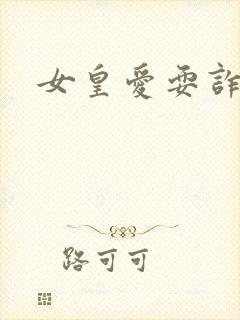 女皇愛耍詐
路可可